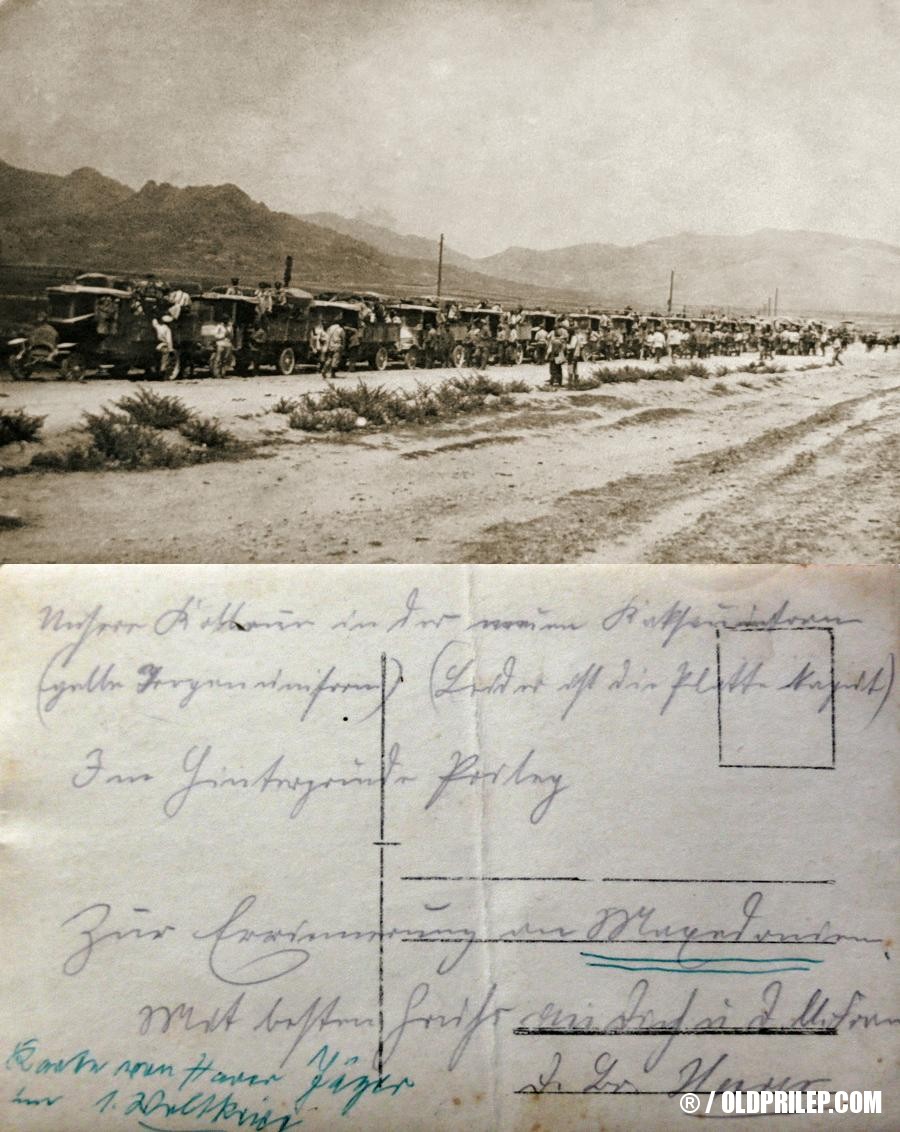 Unsere Kolonne in der neuen Kakhiuniform
(gelbe Tropenuniform) (Leider ist die Platte kaputt)
Im Hintergrunde Prilep
Zur Errinnerung an Mazedonien
Mit besten Grüßen an Dich u. d.
d. Br.
Karte von Jäger
im 1. Weltkrieg
® / OLDPRILEP.COM